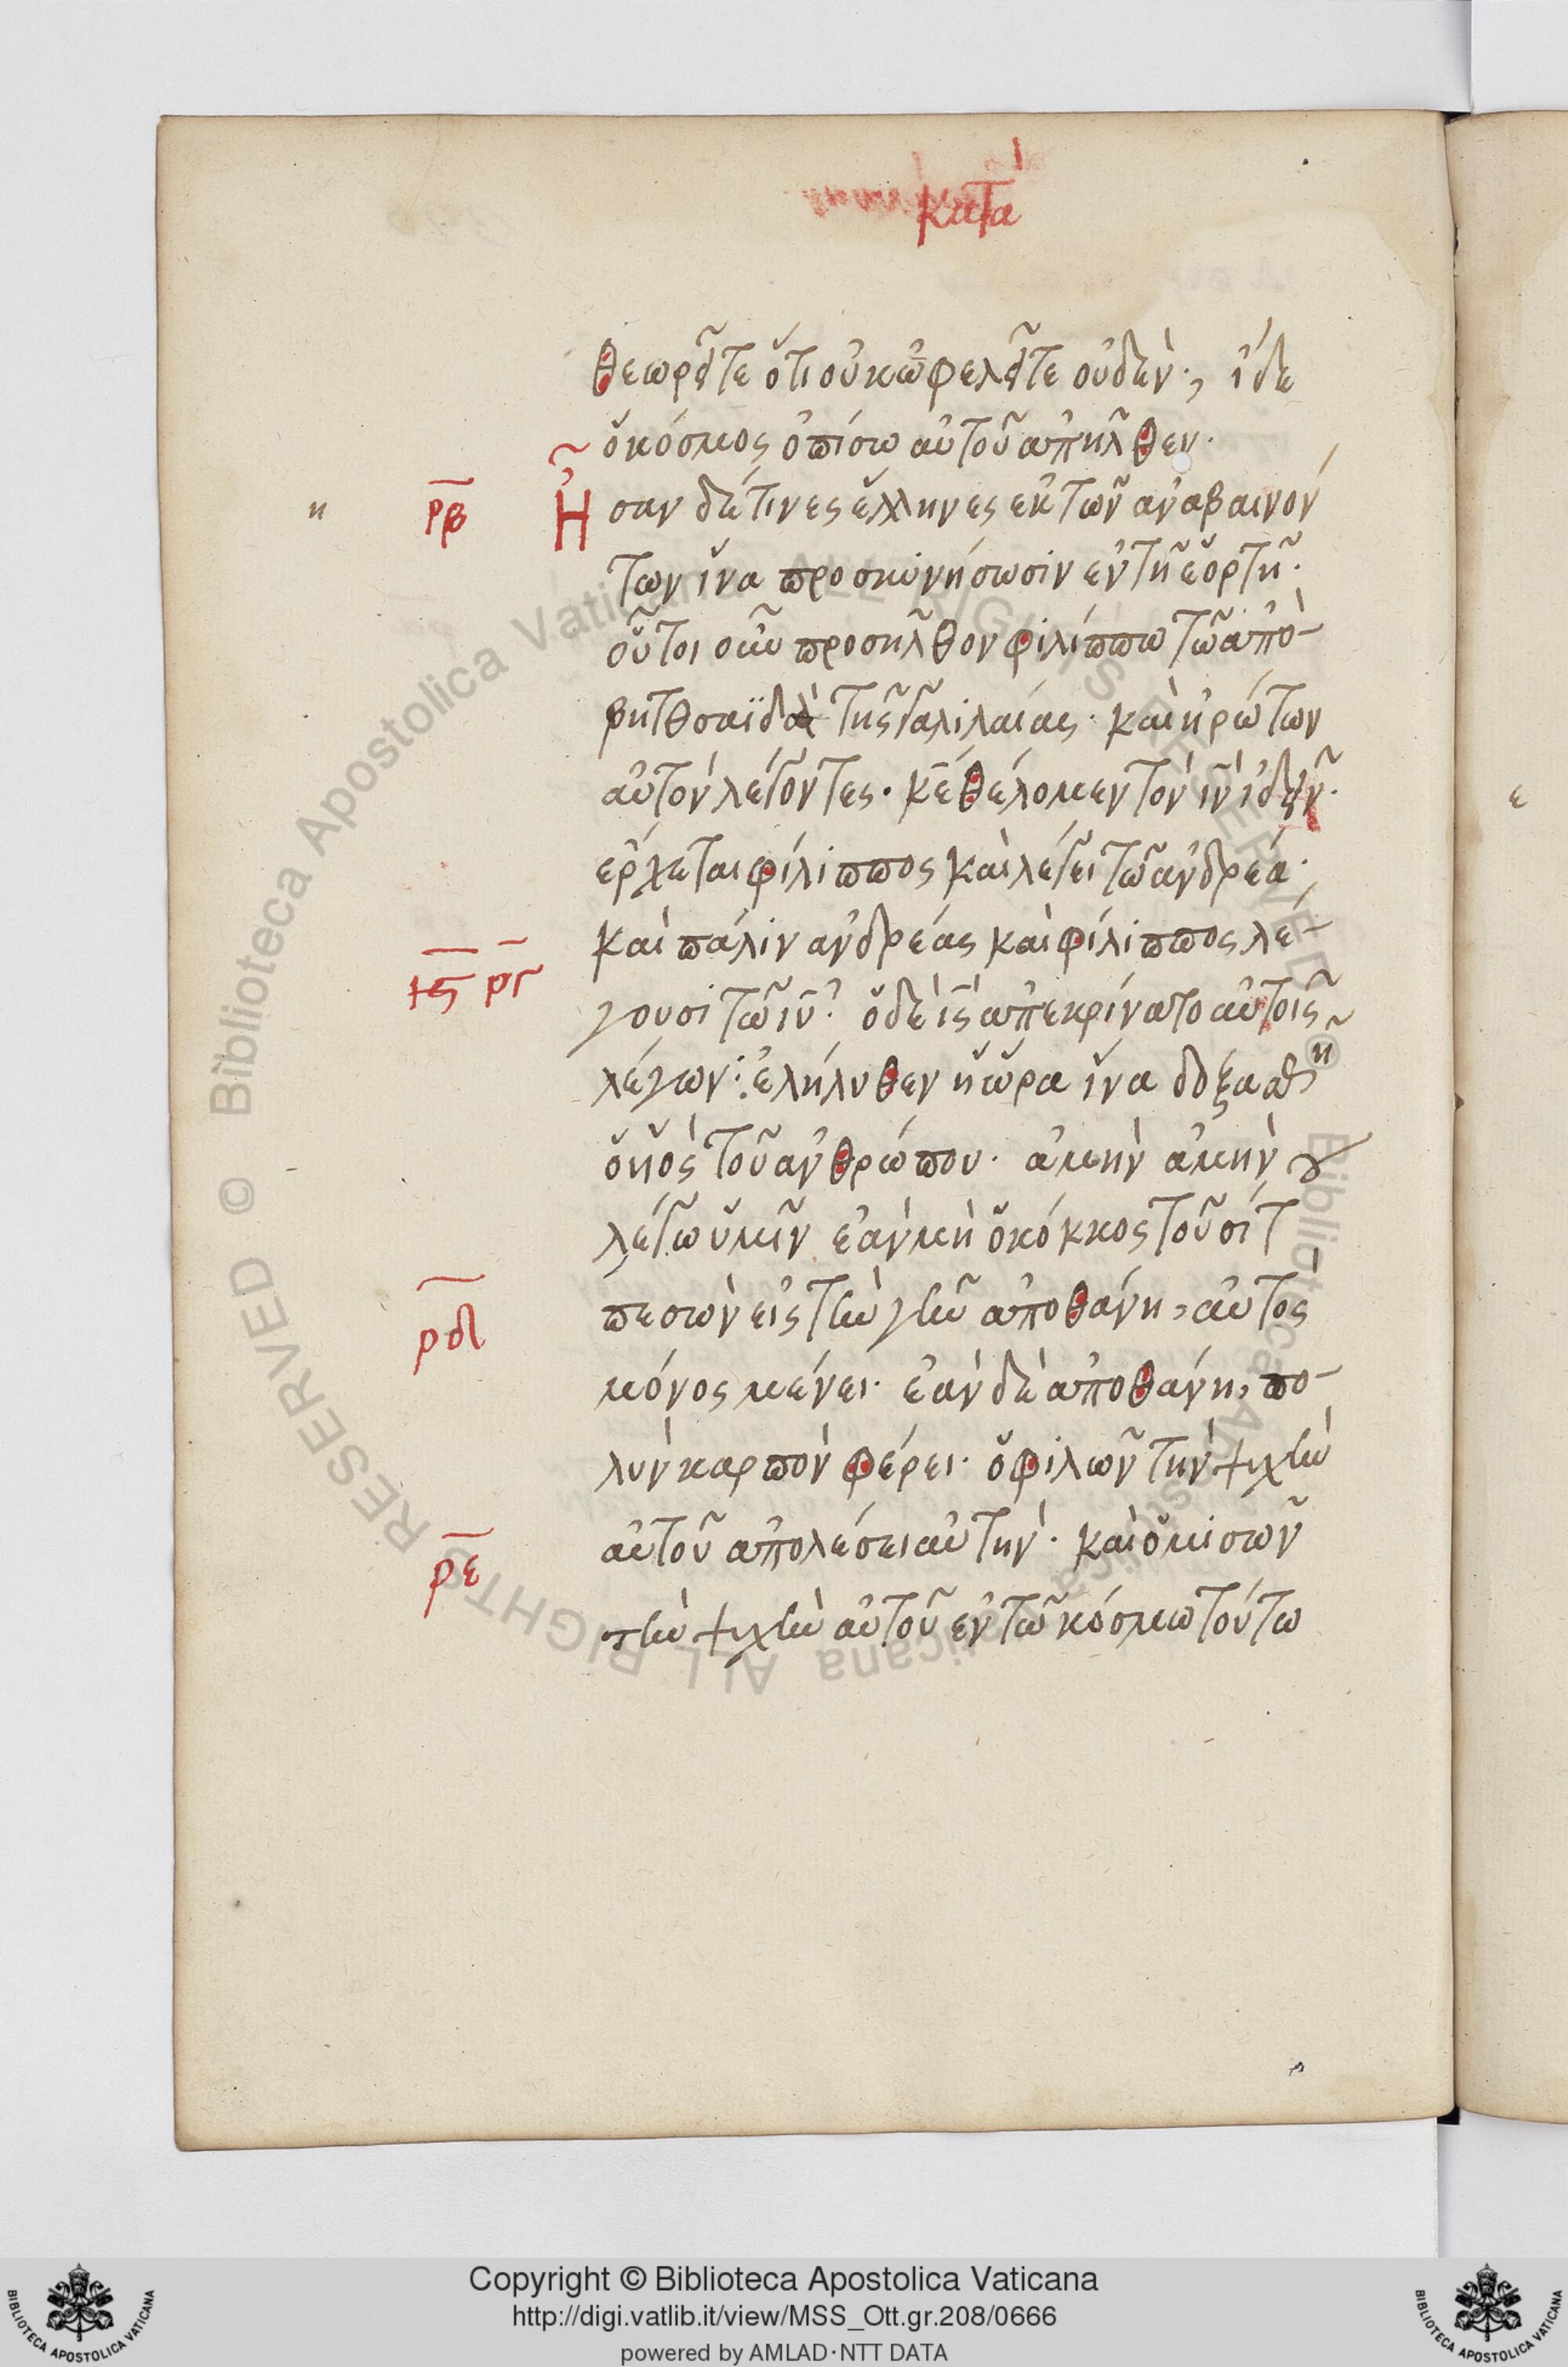 κατὰ
θεωρεῖτε ὅτι οὐκ ὠφελεῖτε οὐδέν·, ἴδε
ὁ κόσμος ὀπίσω αὐτοῦ ἀπῆλθεν·
η ρβ Ἦσαν δέ τινες ἕλληνες ἐκ τῶν ἀναβαινόν
των ἵνα προσκυνήσωσιν ἐν τῆ ἑορτῆ·
οὗτοι οὖν προσῆλθον φιλίππω τῶ ἀπὸ
βητθσαϊδὰ τῆς γαλιλαίας· καὶ ἠρώτων
αὐτὸν λέγοντες· κ̅ε̅ θέλομεν τὸν ι̅ν̅ ἰδεῖν·
ἔρχεται φίλιππος καὶ λέγει τῶ ἀνδρέα·
καὶ πάλιν ἀνδρέας καὶ φίλιππος λέ-
ρ̅γ̅ γουσι τῶ ι̅υ̅· ὁ δὲ ι̅ς̅ ἀπεκρίνατο αὐτοῖς
λέγων· ἐλήλυθεν ἡ ὥρα ἵνα δοξασθῆ
ὁ υἱὸς τοῦ ἀνθρώπου· ἀμὴν ἀμὴν
λέγω ὑμῖν ἐὰν μὴ ὁ κόκκος τοῦ σίτ
ρ̅δ̅ πεσὼν εἰς τὴν γῆν ἀποθάνη, αὐτὸς
μόνος μένει· ἐὰν δὲ ἀποθάνη, πο-
λὺν καρπὸν φέρει· ὁ φιλῶν τὴν ψυχὴν
ρ̅ε̅ αὐτοῦ ἀπολέσει αὐτήν· καὶ ὁ μισῶν
τὴν ψυχὴν αὐτοῦ ἐν τῶ κόσμω τούτω
ε
© Biblioteca Apostolica Vaticana ALL RIGHTS RESERVED © Biblioteca Apostolica Vaticana ALL RIGHTS RESERVED
Copyright © Biblioteca Apostolica Vaticana
http://digi.vatlib.it/view/MSS_Ott.gr.208/0666
powered by AMLAD·NTT DATA
BIBLIOTECA APOSTOLICA VATICANA
BIBLIOTECA APOSTOLICA VATICANA